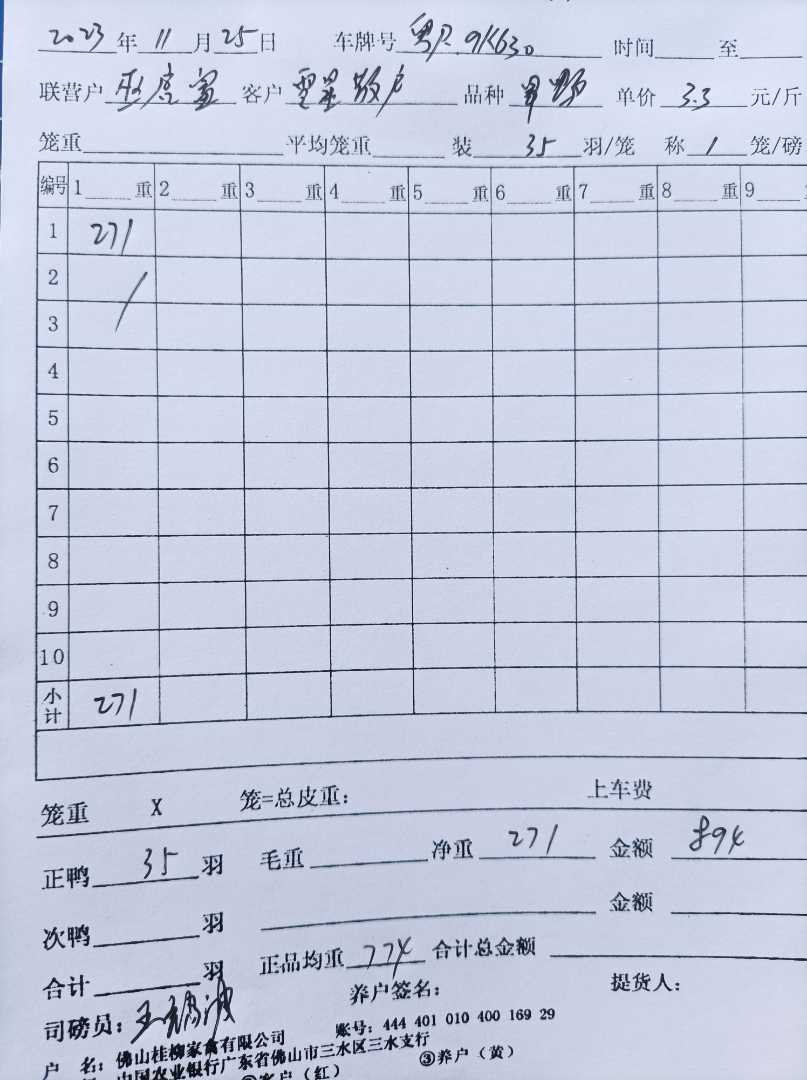 2023 年 11 月 25 日 车牌号 粤 9K630 时间 至
联营户 客户 散户 品种 单价 3.3 元/斤
笼重 平均笼重 装 35 羽/笼 称 1 笼/磅
编号 1 重 2 重 3 重 4 重 5 重 6 重 7 重 8 重 9
1 271
2 /
3
4
5
6
7
8
9
10
小计 271
笼重 X 笼=总皮重: 上车费
正鸭 35 羽 毛重 净重 271 金额 894
次鸭 羽 金额
合计 羽 正品均重 774 合计总金额
司磅员: 王 养户签名: 提货人:
户 名: 佛山桂柳家禽有限公司 账号: 444 401 010 400 169 29
中国农业银行广东省佛山市三水区三水支行
客户（红） ③养户（黄）